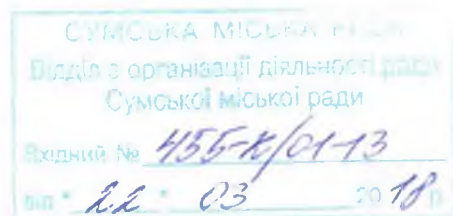 СУМСЬКА МІСЬКА РАДА
Відділ з організації діяльності ради
Сумської міської ради
Вхідний № 455-К/01-13
від " 22 " 03 2018 р